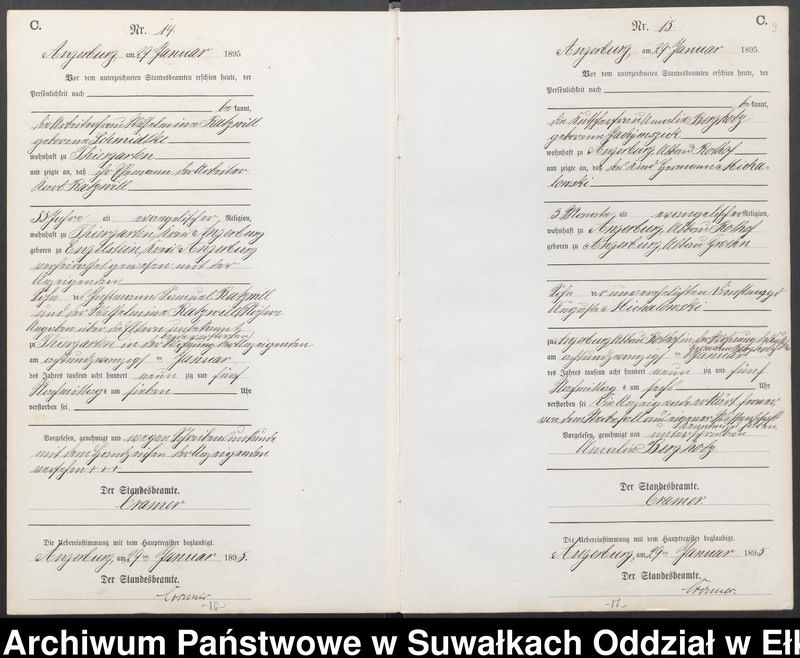 C.
Nr. 14.
Angerburg, am 29 Januar 1895
Vor dem unterzeichneten Standesbeamten erschien heute, der
Persönlichkeit nach
bekannt,
die Arbeiterfrau Wilhelmine Katzwill
geborene Schmidtke
wohnhaft zu Thiergarten
und zeigte an, daß ihr Ehemann der Arbeiter
Karl Katzwill
55 Jahre alt evangelischer Religion,
wohnhaft zu Thiergarten Kreis Angerburg
geboren zu Engelstein Kreis Angerburg
verheirathet gewesen mit der
Anzeigenden
Sohn des Samuel Katzwill
und der Wilhelmine Katzwill
Angaben über die Eltern unbekannt
zu Thiergarten in der Wohnung der Anzeigenden
am Januar
des Jahres tausend acht hundert neunzig und fünf
Nachmittags um sieben Uhr
verstorben sei.
Vorgelesen, genehmigt und wegen Schreibensunkunde
mit dem Handzeichen der Anzeigenden
versehen + + +
Der Standesbeamte.
Cramer
Die Uebereinstimmung mit dem Hauptregister beglaubigt.
Angerburg, am 29 ten Januar 1895.
Der Standesbeamte.
Cramer.
C. 9
Nr. 15
Angerburg, am 29 Januar 1895.
Vor dem unterzeichneten Standesbeamten erschien heute, der
Persönlichkeit nach
bekannt,
die Amalie Bergholz
geborene
wohnhaft zu Angerburg, Abbau Rothof
und zeigte an, daß das Kind Hermann Micha-
lowski
3 Monate, alt evangelischer Religion,
wohnhaft zu Angerburg, Abbau Rothof
geboren zu Angerburg Abbau
Sohn der unverehelichten
Auguste Michalowski
zu Angerburg Abbau Rothof in der Wohnung
am Januar
des Jahres tausend acht hundert neunzig und fünf
Nachmittags um sechs Uhr
verstorben sei. Die Anzeigende erklärt ferner,
von dem Sterbefall aus eigener Wissenschaft
Vorgelesen, genehmigt und unterschrieben
Amalie Bergholz
Der Standesbeamte.
Cramer.
Die Uebereinstimmung mit dem Hauptregister beglaubigt.
Angerburg, am 29 ten Januar 1895
Der Standesbeamte.
Cramer.
Archiwum Państwowe w Suwałkach Oddział w Eł